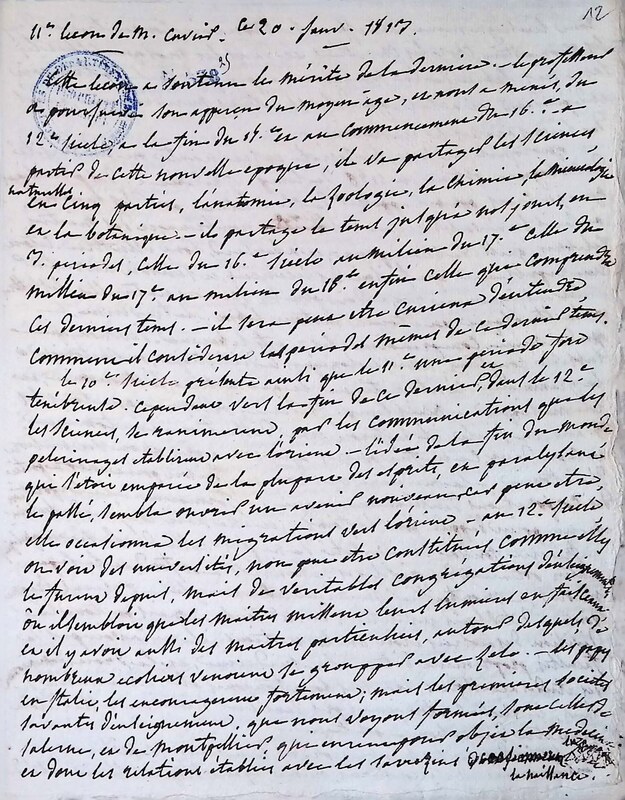 12
11e leçon de M. Cuvier. Ce 20. Janv. 1813.
Cette leçon a soutenu le mérite de la derniere - le professeur
a poursuivi son apperçu du moyen âge, et nous a menés, du
12e siecle, a la fin du 15e et au commencement du 16e - a
partir de cette nouvelle epoque, il va partager les sciences
naturelles
en cinq parties, l'anatomie, la zoologie, la chimie, la mineralogie
et la botanique - il partage le tems jusqu'à nos jours, en
3. periodes, celle du 16e siecle au milieu du 17e celle du
milieu du 17e au milieu du 18e enfin celle qui comprend
ces derniers tems. - il sera peut etre curieux d'entendre
comment il considerera les periodes mêmes de ce dernier tems.
le 10e siecle présente ainsi que le 11e une periode fort
tenebreuse. cependant vers la fin de ce dernier, et dans le 12e
les sciences, se ranimerent, par les communications que les
pelerinages etablirent avec l'orient - l'idée de la fin du monde
qui s'étoit emparée de la plupart des esprits, en paralysant
le passé, sembla ouvrir un avenir nouveau car peut etre
elle occasionna les migrations vers l'orient - au 12e siecle
on voit des universités, non que etre constituées comme elles
le furent depuis, mais de veritables congrégations d'enseignement
où il sembloit que les maitres missent leurs lumieres en faisceau
et il y avoit aussi des maitres particuliers, autour desquels, de
nombreux ecoliers venoient se groupper avec zele. - les papes
en Italie, les encouragerent fortement; mais les premieres societés
savantes d'enseignement, que nous voyons formées, sont celles de
Salerne, et de Montpellier, qui eurent pour objet la medecine
et dont les relations établies avec les Sarrazins
la naissance.